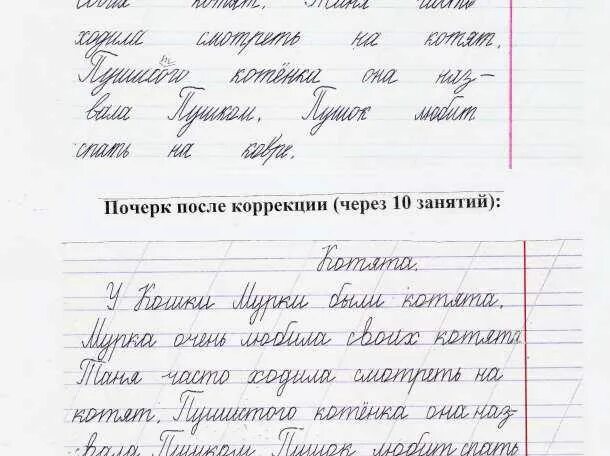 своих котят. Таня часто
ходила смотреть на котят.
Пушистого котёнка она наз-
вала Пушком. Пушок любит
спать на ковре.
Почерк после коррекции (через 10 занятий):
Котята.
У Кошки Мурки были котята.
Мурка очень любила своих котята
Таня часто ходила смотреть на
котят. Пушистого котёнка она наз-
вала Пушком. Пушок любит спать